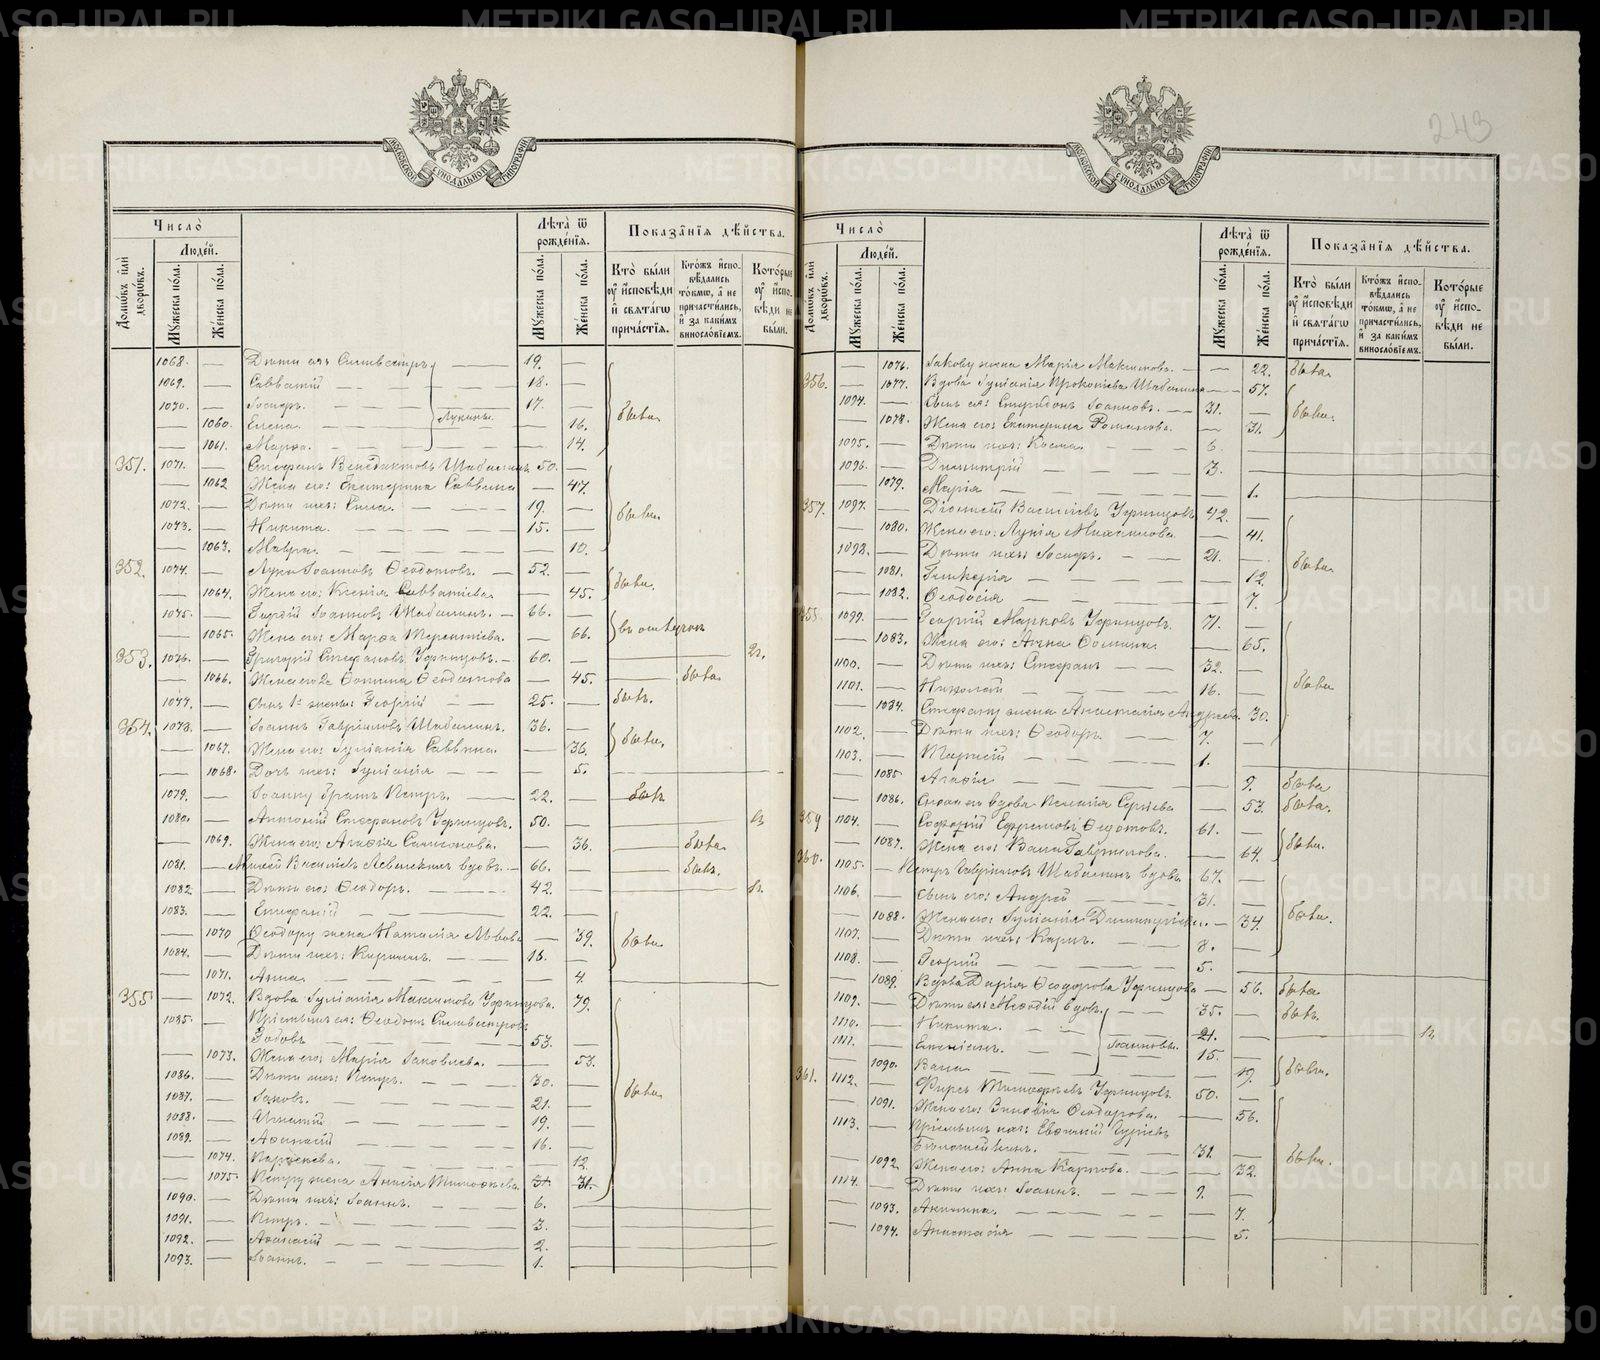 243
МОСКОВСКОЙ СѴНОДАЛЬНОЙ ТИПОГРАФІИ
Число̀
Людей.
Домѡвъ или дворѡвъ.
Мужеска пола.
Женска пола.
Лѣта ѿ рожденїя.
Мужеска пола.
Женска пола.
Показанїя дѣйства.
Кто были у исповѣди и святагѡ причастїя.
Ктожъ исповѣдались токмѡ, а не причастились, и за какимъ винословїемъ.
Которые у исповѣди не были.
1068. — Дѣти ея: Сильвестръ — 19. —
1069. — Савватій — — 18. —
1070. — Іосифъ — — 17. —
— 1060. Елена — — Лукины — 16. были
— 1061. Марѳа — — 14.
351. 1071. — Стефанъ Венедиктовъ Шабалинъ 50. —
— 1062 Жена его: Екатерина Саввина — 47.
1072. — Дѣти ихъ: Сила — 19. — были
1073. — Никита — 15. —
— 1063. Мавра — — 10.
352. 1074. — Лука Іоанновъ Ѳедотовъ — 52. —
— 1064. Жена его: Ксенія Савватіева — 45. были
1075. — Іоанновъ Шабалинъ — 66. —
— 1065. Жена его: Марѳа Терентіева — 66.
353. 1076. — Григорій Стефановъ Уфинцовъ — 60. —
— 1066. Жена его 2я Ѳедотова — 45. была
1077. — Сынъ 1й жены: Георгій — — 25. — былъ
354. 1078. — Іоаннъ Гавріиловъ Шабалинъ 36. —
— 1067. Жена его: Іуліанія Саввина — 36. были
— 1068. Дочь ихъ: Іуліанія — — 5.
1079. — Іоанну братъ Петръ — 22. — былъ
1080. — Антоній Стефановъ Уфинцовъ 50. —
— 1069. Жена его: Агафія Самсонова — 36. была
1081. — Василіевъ вдовъ — 66. — былъ
1082. — Дѣти его: Ѳеодоръ — 42. —
1083. — Епифаній — — 22. —
— 1070 Ѳеодору жена Наталія Львова — 39. были
1084. — Дѣти ихъ: — 16. —
— 1071. Анна — — 4.
355 — 1072. Вдова Іуліанія Максимова Уфинцова 79.
1085. — Пріемышъ ея: Ѳеодоръ Сильвестровъ
53. —
— 1073. Жена его: Марія Іаковлева — 53.
1086. — Дѣти ихъ: Петръ — — 30. — были
1087. — Іаковъ — — 21. —
1088. — Игнатій — — 19. —
1089. — Аѳанасій — — 16. —
— 1074. — 12.
— 1075. Петру жена Анисія Тимоѳеева 31.
1090. — Дѣти ихъ: Іоаннъ — — 6. —
1091. — Петръ — — 3. —
1092. — Аѳанасій — — 2. —
1093. — Іоаннъ — — 1. —
Число̀
Людей.
Домѡвъ или дворѡвъ.
Мужеска пола.
Женска пола.
Лѣта ѿ рожденїя.
Мужеска пола.
Женска пола.
Показанїя дѣйства.
Кто были у исповѣди и святагѡ причастїя.
Ктожъ исповѣдались токмѡ, а не причастились, и за какимъ винословїемъ.
Которые у исповѣди не были.
— 1076. Іакову жена Марія Максимова — 22. была
356. — 1077. Вдова Іуліанія Прокопіева Шабалина — 57.
1094. — Сынъ ея: Спиридонъ Іоанновъ — 31. — были
— 1078. Жена его: Екатерина Романова — 31.
1095. — Дѣти ихъ: Косма — — 6. —
1096. — Димитрій — — 3. —
— 1079. Марія — — 1.
357. 1097. — Діонисій Василіевъ Уфинцовъ 42. —
— 1080. Жена его: Лукія Михаилова — 41.
1098. — Дѣти ихъ: Іосифъ — 21. — были
— 1081. Гликерія — — 12
— 1082. Ѳеодосія — — 7.
358. 1099. — Георгій Марковъ Уфинцовъ 71. —
— 1083. Жена его: Анна Ѳомина — 65.
1100. — Дѣти ихъ: Стефанъ — — 32. —
1101. — Николай — — 16. — были
— 1084. Стефану жена Анастасія Андреева 30.
1102. — Дѣти ихъ: Ѳеодоръ — — 7. —
1103. — — 1. —
— 1085 Агафія — — 9. была
— 1086. вдова Сергіева — 53. была
359 1104. — Ѳедотовъ 61. —
— 1087. Жена его: Васса Гаврилова — 64. были
360. 1105. — Петръ Гавріиловъ Шабалинъ вдовъ 67. —
1106. — Сынъ его: Андрей — — 31. —
— 1088. Жена его: Іуліанія Димитріева — 34. были
1107. — Дѣти ихъ: Карпъ — — 8. —
1108. — Георгій — — 5. —
— 1089. Вдова Дарія Ѳеодорова Уфинцова — 56. была
1109. — Дѣти ея: вдовъ 35. — былъ
1110. — Никита — — Іоанновы 21. —
1111. — — 15. —
— 1090. Васса — — 19. были
361. 1112. — Фирсъ Тимоѳеевъ Уфинцовъ 50. —
— 1091. Жена его: Зиновія Ѳеодорова — 56.
1113. — Пріемышъ ихъ: Евѳимій
31. — были
— 1092 Жена его: Анна Карпова — — 32.
1114. — Дѣти ихъ: Іоаннъ — — 9. —
— 1093. Акилина — — 7.
— 1094. Анастасія — — 5.
METRIKI.GASO-URAL.RU